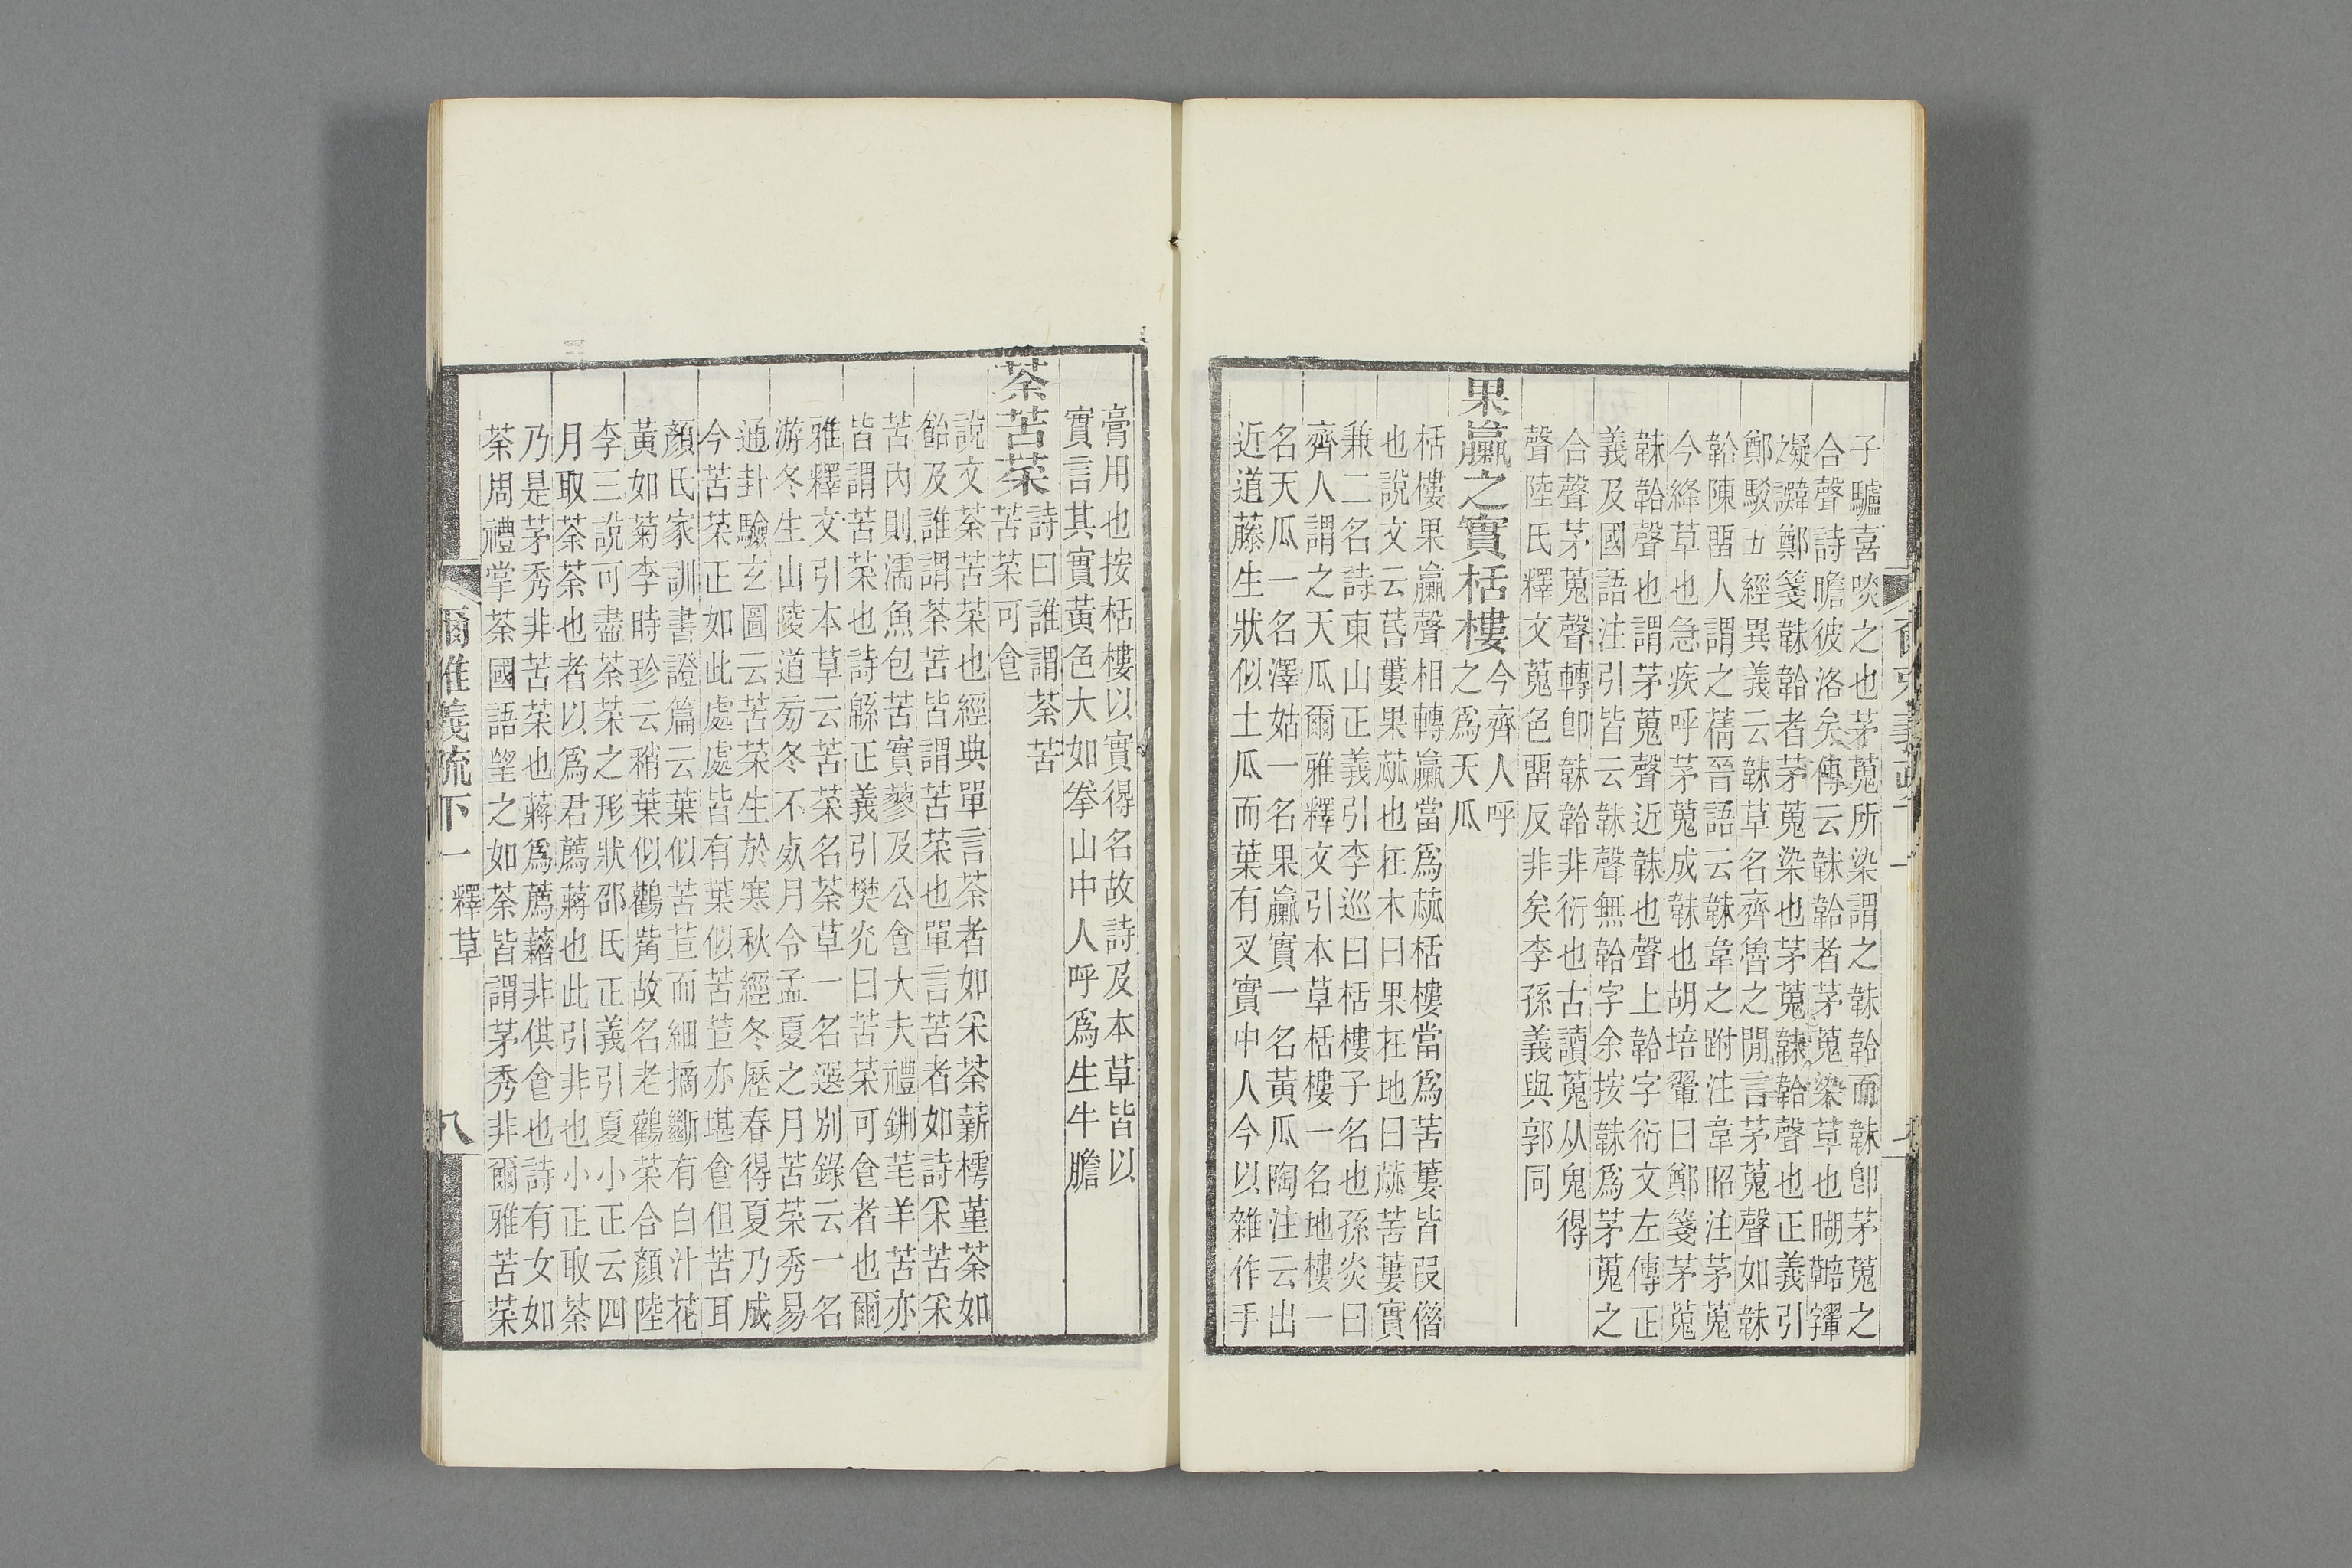 子驢喜啖之也茅蒐所染謂之韎韐而韎卽茅蒐之
合聲詩瞻彼洛矣傳云韎韐者茅蒐染草也
鄭箋韎韐者茅蒐染也茅蒐韎韐聲也正義引
鄭駁五經異義云韎草名齊魯之閒言茅蒐聲如韎
韐陳畱人謂之蒨晉語云韎韋之跗注韋昭注茅蒐
今絳草也急疾呼茅蒐成韎也胡培翬曰鄭箋茅蒐
韎韐聲也謂茅蒐聲近韎也聲上韐字衍文左傳正
義及國語注引皆云韎聲無韐字余按韎爲茅蒐之
合聲茅蒐聲轉卽韎韐非衍也古讀蒐从鬼得
聲陸氏釋文蒐色畱反非矣李孫義與郭同
果臝之實栝樓
今齊人呼
之爲天瓜
栝樓果臝聲相轉臝當爲蓏栝樓當爲苦蔞皆叚借
也說文云苦蔞果蓏也在木曰果在地曰蓏苦蔞實
兼二名詩東山正義引李巡曰栝樓子名也孫炎曰
齊人謂之天瓜爾雅釋文引本草栝樓一名地樓一
名天瓜一名澤姑一名果臝實一名黃瓜陶注云出
近道藤生狀似土瓜而葉有叉實中人今以雜作手
膏用也按栝樓以實得名故詩及本草皆以
實言其實黃色大如拳山中人呼爲生牛膽
荼苦菜
詩曰誰謂荼苦
苦菜可食
說文荼苦菜也經典單言荼者如采荼薪樗堇荼如
飴及誰謂荼苦皆謂苦菜也單言苦者如詩采苦采
苦內則濡魚包苦實蓼及公食大夫禮鉶芼羊苦亦
皆謂苦菜也詩緜正義引樊光曰苦菜可食者也爾
雅釋文引本草云苦菜名荼草一名選別錄云一名
游冬生山陵道旁冬不死月令孟夏之月苦菜秀易
通卦驗玄圖云苦菜生於寒秋經冬歷春得夏乃成
今苦菜正如此處處皆有葉似苦苣亦堪食但苦耳
顏氏家訓書證篇云葉似苦苣而細摘斷有白汁花
黃如菊李時珍云稍葉似鸛觜故名老鸛菜合顏陸
李三說可盡荼菜之形狀邵氏正義引夏小正云四
月取荼荼也者以爲君薦蔣也此引非也小正取荼
乃是茅秀非苦菜也蔣爲薦藉非供食也詩有女如
荼周禮掌荼國語望之如荼皆謂茅秀非爾雅苦菜
爾雅義疏下一
釋草
八